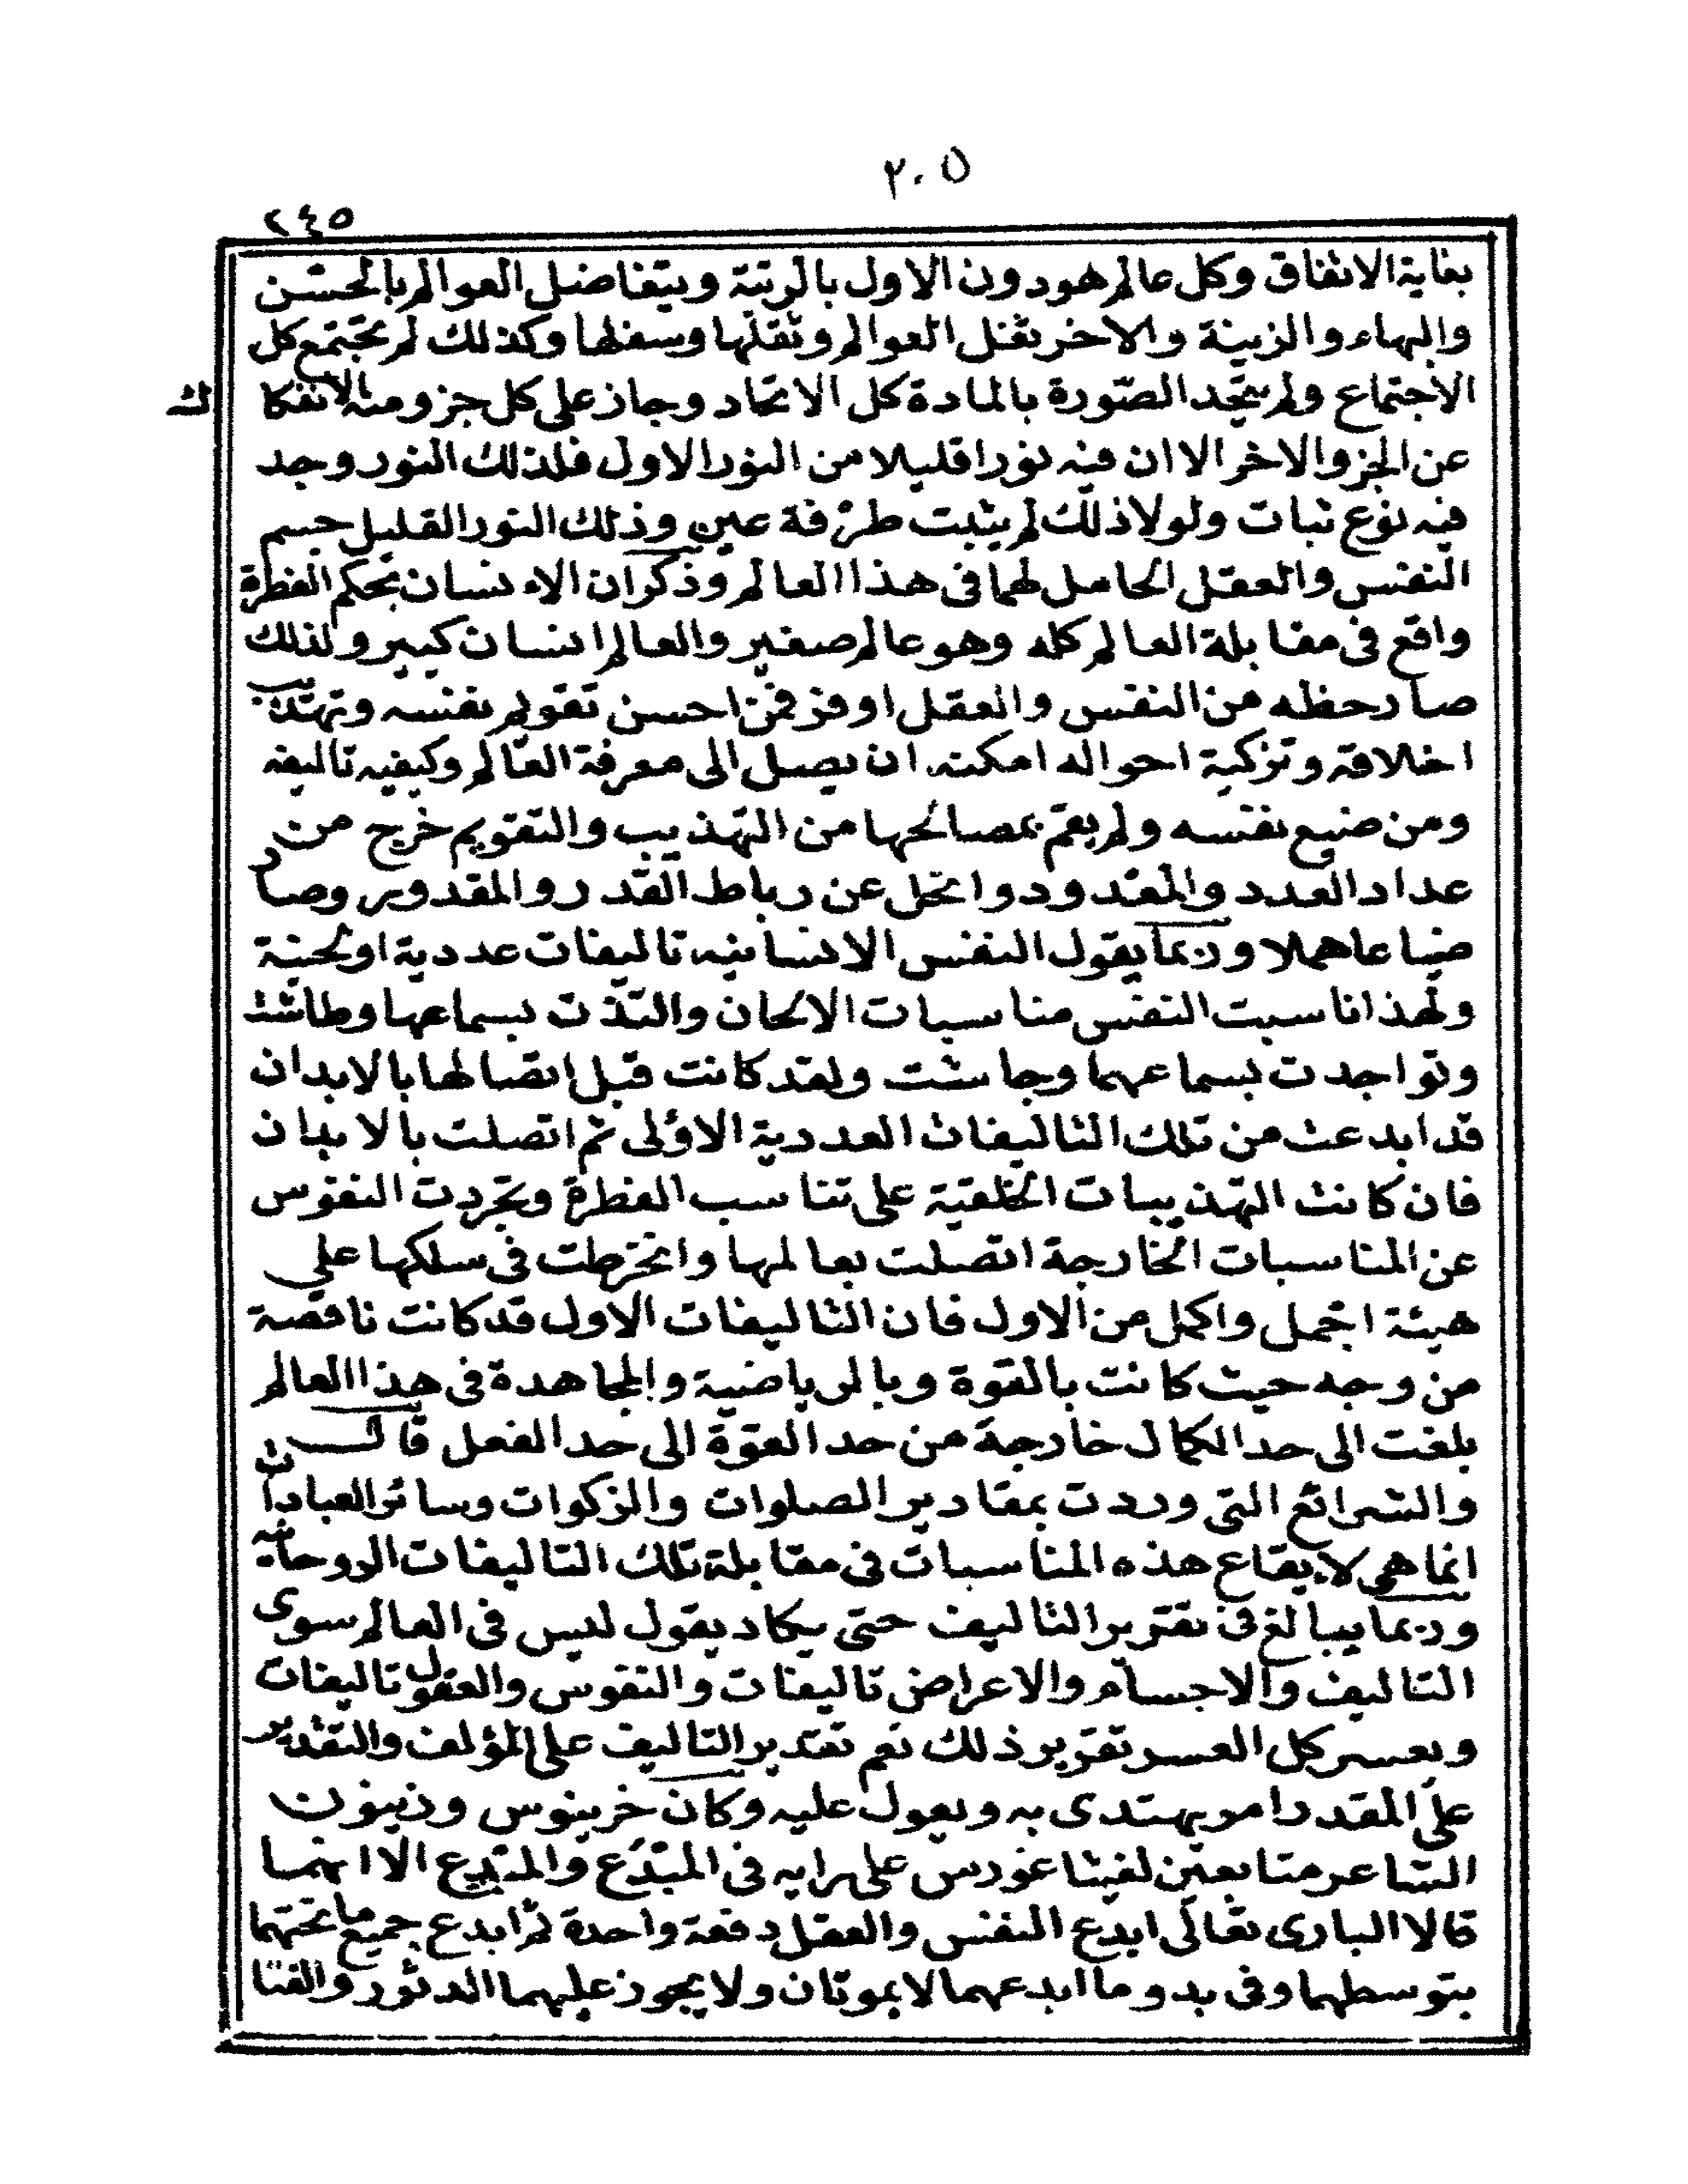 ٢٠٥
٢٤٥
بغاية الاتفاق وكل عالم هو دون الاول بالرتبة ويتفاضل العوالم بالحسن
والبهاء والزينة والاخر ثفل العوالم وثقلها وسفلها وكذلك لم تجتمع كل
الاجتماع ولم يتحد الصّورة بالمادة كل الاتحاد وجاز على كل جزو منه الانفكاك
عن الجزو الاخر الا ان فيه نورا قليلا من النور الاول فلذلك النور وجد
فيه نوع ثبات ولولا ذلك لم يثبت طرفة عين وذلك النور القليل جسم
النفس والعقل الحامل لهما في هذا العالم وذكر ان الانسان بحكم الفطرة
واقع في مقابلة العالم كله وهو عالم صغير والعالم انسان كبير ولذلك
صار حظه من النفس والعقل اوفر فمن احسن تقويم نفسه وتهذيب
اخلاقه وتزكية احواله امكنه ان يصل الى معرفة العالم وكيفيه تاليفه
ومن ضيع نفسه ولم يقم بمصالحها من التهذيب والتقويم خرج من
عداد العدد والمعدود وانحل عن رباط القدر والمقدور وصار
ضياعا هملا وربما يقول النفس الانسانيه تاليفات عددية او لحنية
ولهذا ناسبت النفس مناسبات الالحان والتذت بسماعها وطاشت
وتواجدت بسماعها وجاشت ولقد كانت قبل اتصالها بالابدان
قد ابدعت من تلك التاليفات العددية الاولى ثم اتصلت بالابدان
فان كانت التهذيبات الخلقية على تناسب الفطرة وتجردت النفوس
عن المناسبات الخارجة اتصلت بعالمها وانخرطت في سلكها على
هيئة اجمل واكمل من الاول فان التاليفات الاول قد كانت ناقصة
من وجه حيث كانت بالقوة وبالرياضية والمجاهدة في هذا العالم
بلغت الى حد الكمال خارجة من حد القوة الى حد الفعل قال
والشرائع التي وردت بمقادير الصلوات والزكوات وسائر العبادات
انما هي لايقاع هذه المناسبات في مقابلة تلك التاليفات الروحانيه
وربما يبالغ في تقرير التاليف حتى يكاد يقول ليس في العالم سوى
التاليف والاجسام والاعراض تاليفات والنفوس والعقول تاليفات
ويعسر كل العسر تقرير ذلك نعم تقدير التاليف على المؤلف والتقدير
على المقدر امر يهتدى به ويعول عليه وكان خرينوس وزينون
الشاعر متابعين لفيثاغورس على رايه في المبتدَع والمبتدِع الا انهما
قالا البارى تعالى ابدع النفس والعقل دفعة واحدة ثم ابدع جميع ما تحتهما
بتوسطهما وفي بدو ما ابدعهما لا يموتان ولا يجوز عليهما الدثور والفنا